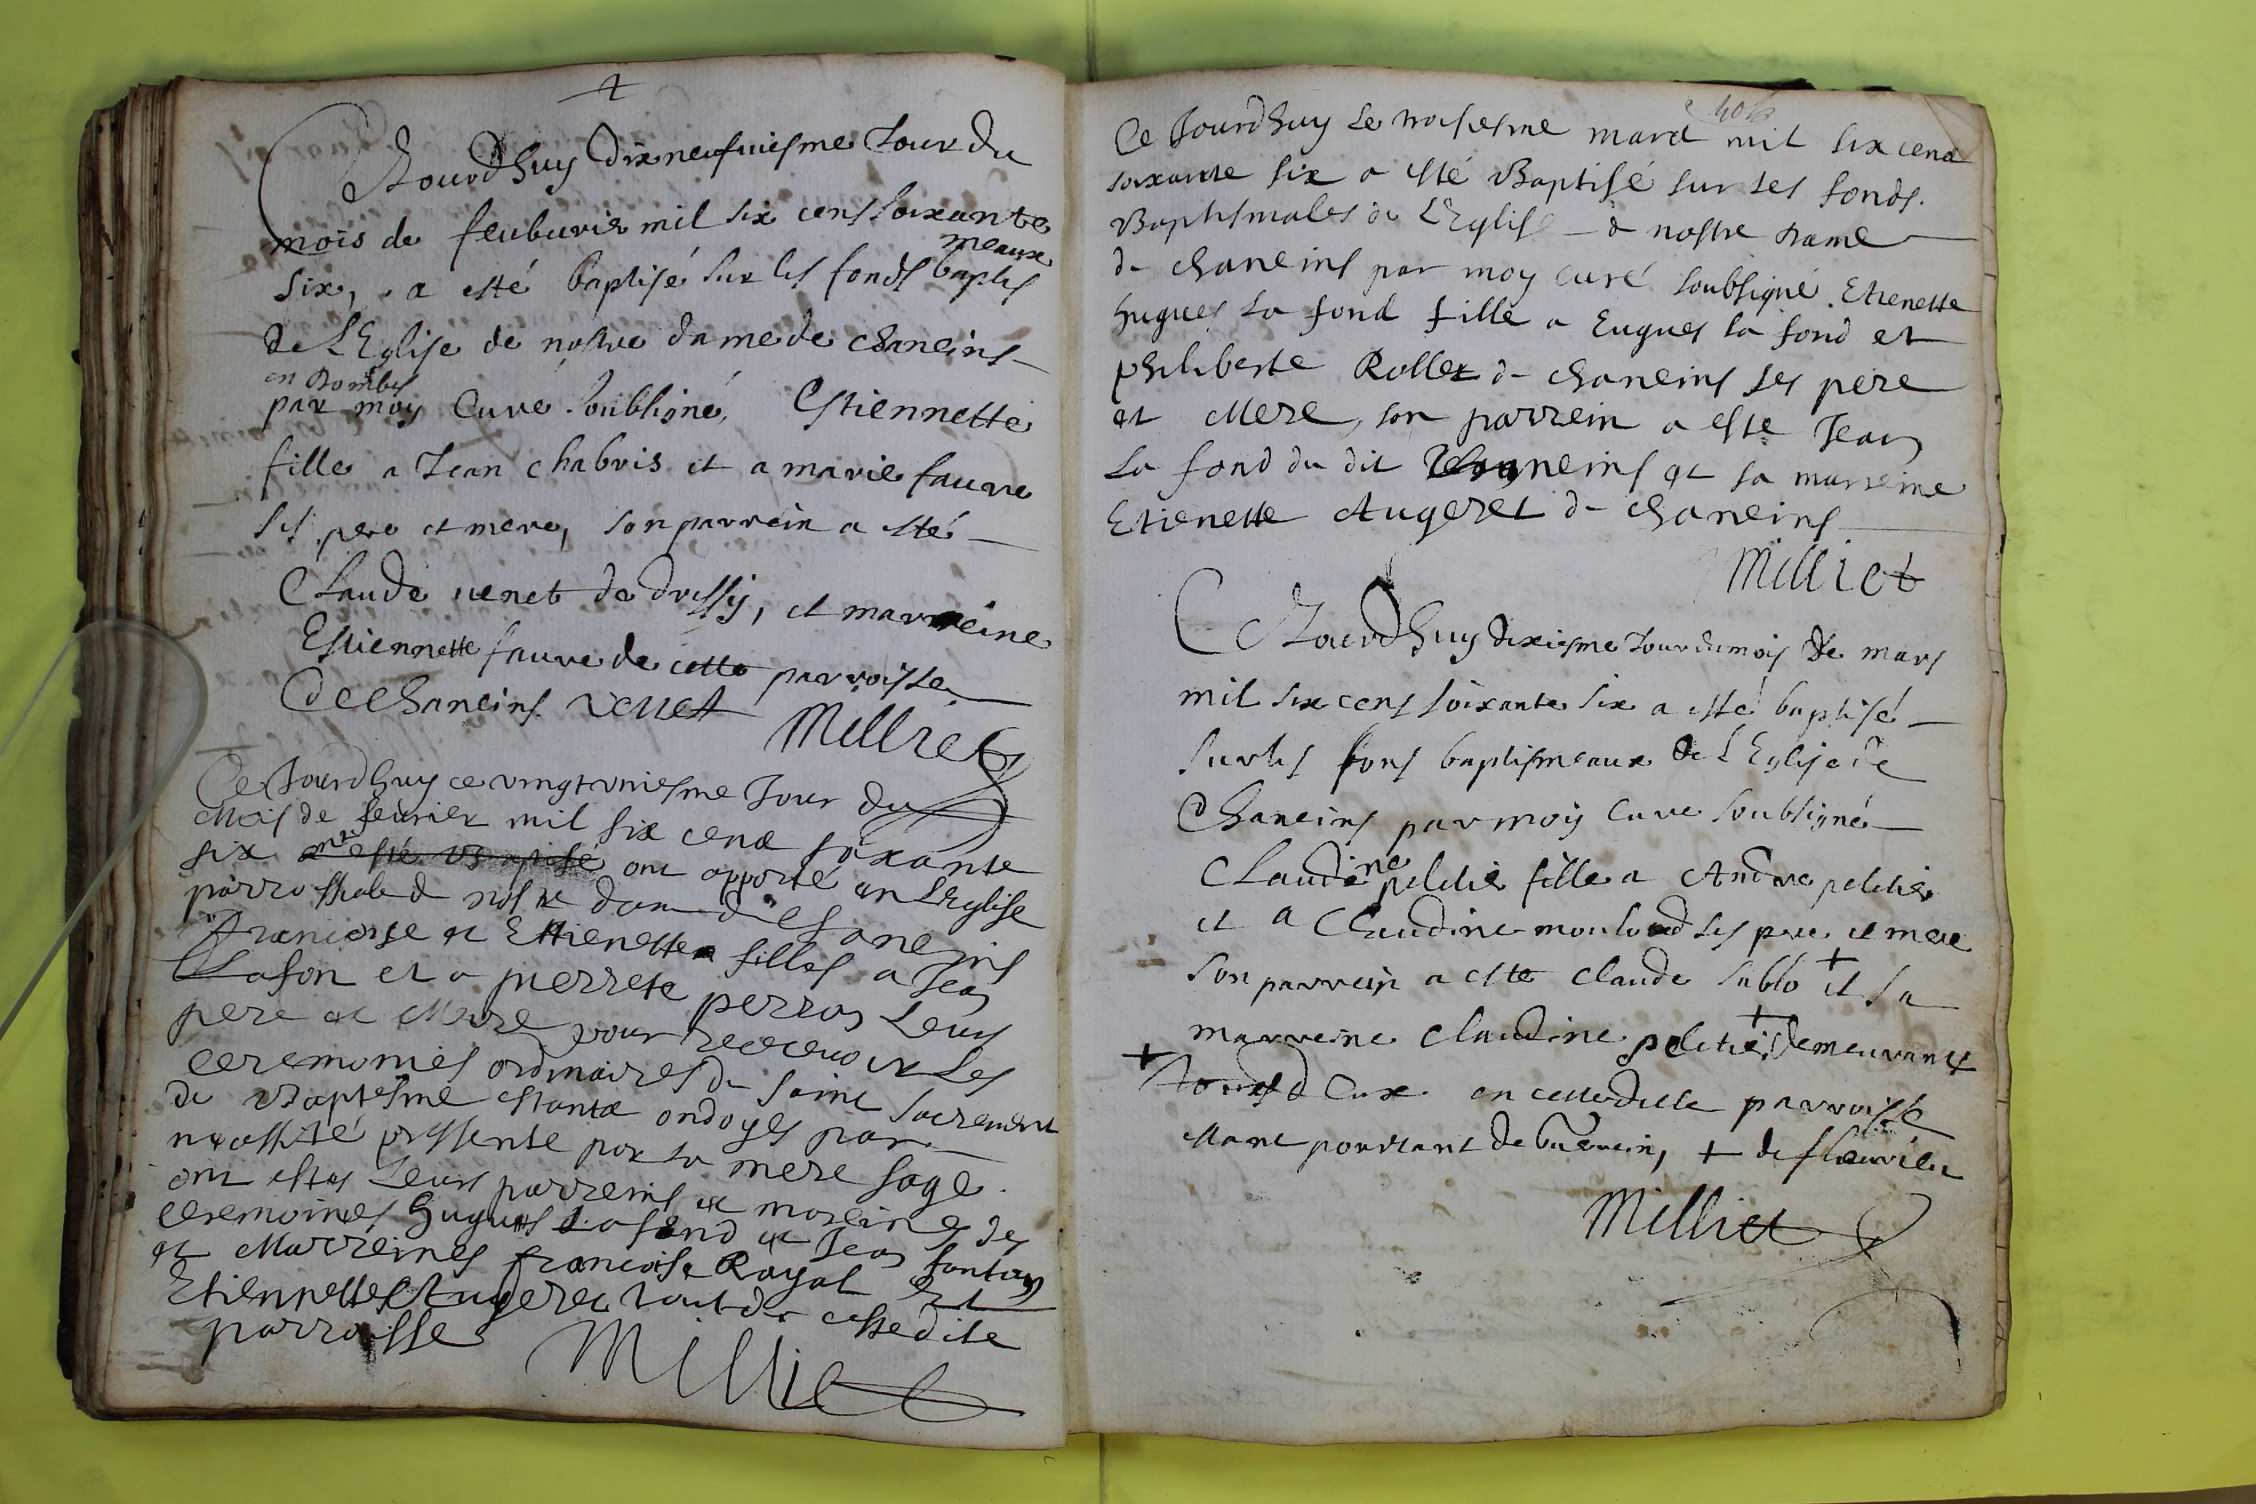 Ce Jourdhuy dixneufuiesme Jour du
mois de feubvrier mil six cens soixante
six, a esté baptisé sur les fonds baptis
meaux
de L'Eglise de nostre dame de chaneins
en Dombes
par moy Curé soubsigné, Estiennette
fille a Jean chabris et a marie fauvre
ses pere et mere, son parrein a esté
Claude venet de drussy, et marreine
Estiennette fauvre de cette parroisse
de Chaneins. venet Milliet
Ce Jourdhuy ce vingt vniesme Jour du
Mois de feurier mil six cens soixante
six ont apporté en L'Eglise
parrossiale de nostre dame de Chaneins
francoise et Ettienette filles a Jean
Lafon et a pierrete perron Leurs
pere et Mere pour recepuoir Les
ceremonies ordinaires du saint sacrement
de Baptesme estante ondoyes par
necessité pressente par sa mere sage.
ont estes Leurs parreins et mareines des
ceremoines hugues Lafond et Jean fontan
et Marreines francoise Rayal et
Etiennette Augeret tout de cestedite
parroisse Milliet
406
Ce Jourdhuy Le troisiesme mard mil six cens
soixante six a esté Baptisé sur Les fonds
Baptismales de L'Eglise de nostre dame
de chaneins par moy curé soubsigné Etienette
hugues La fond fille a Eugues la fond et
philiberte Rollet de chaneins ses pere
et Mere, son parrein a este Jean
La fond du dit Chaneins et sa marreine
Etienette Augeret de chaneins
Milliet
Ce Jourdhuy dixiesme Jour du mois de mars
mil six cens soixante six a esté baptisé
sur les fons baptismeaux de L'Eglise de
Chaneins par moy Curé soubsigné
Claudine peletié fille a Andre peletié
et a Claudine mouloud ses pere et mere
son parrein a este Claude sablo + et sa
marreine Claudine peletié + demeurants
+ tous deux en cettedite parroisse
estant pourtant de , + de fleurieu
Milliet